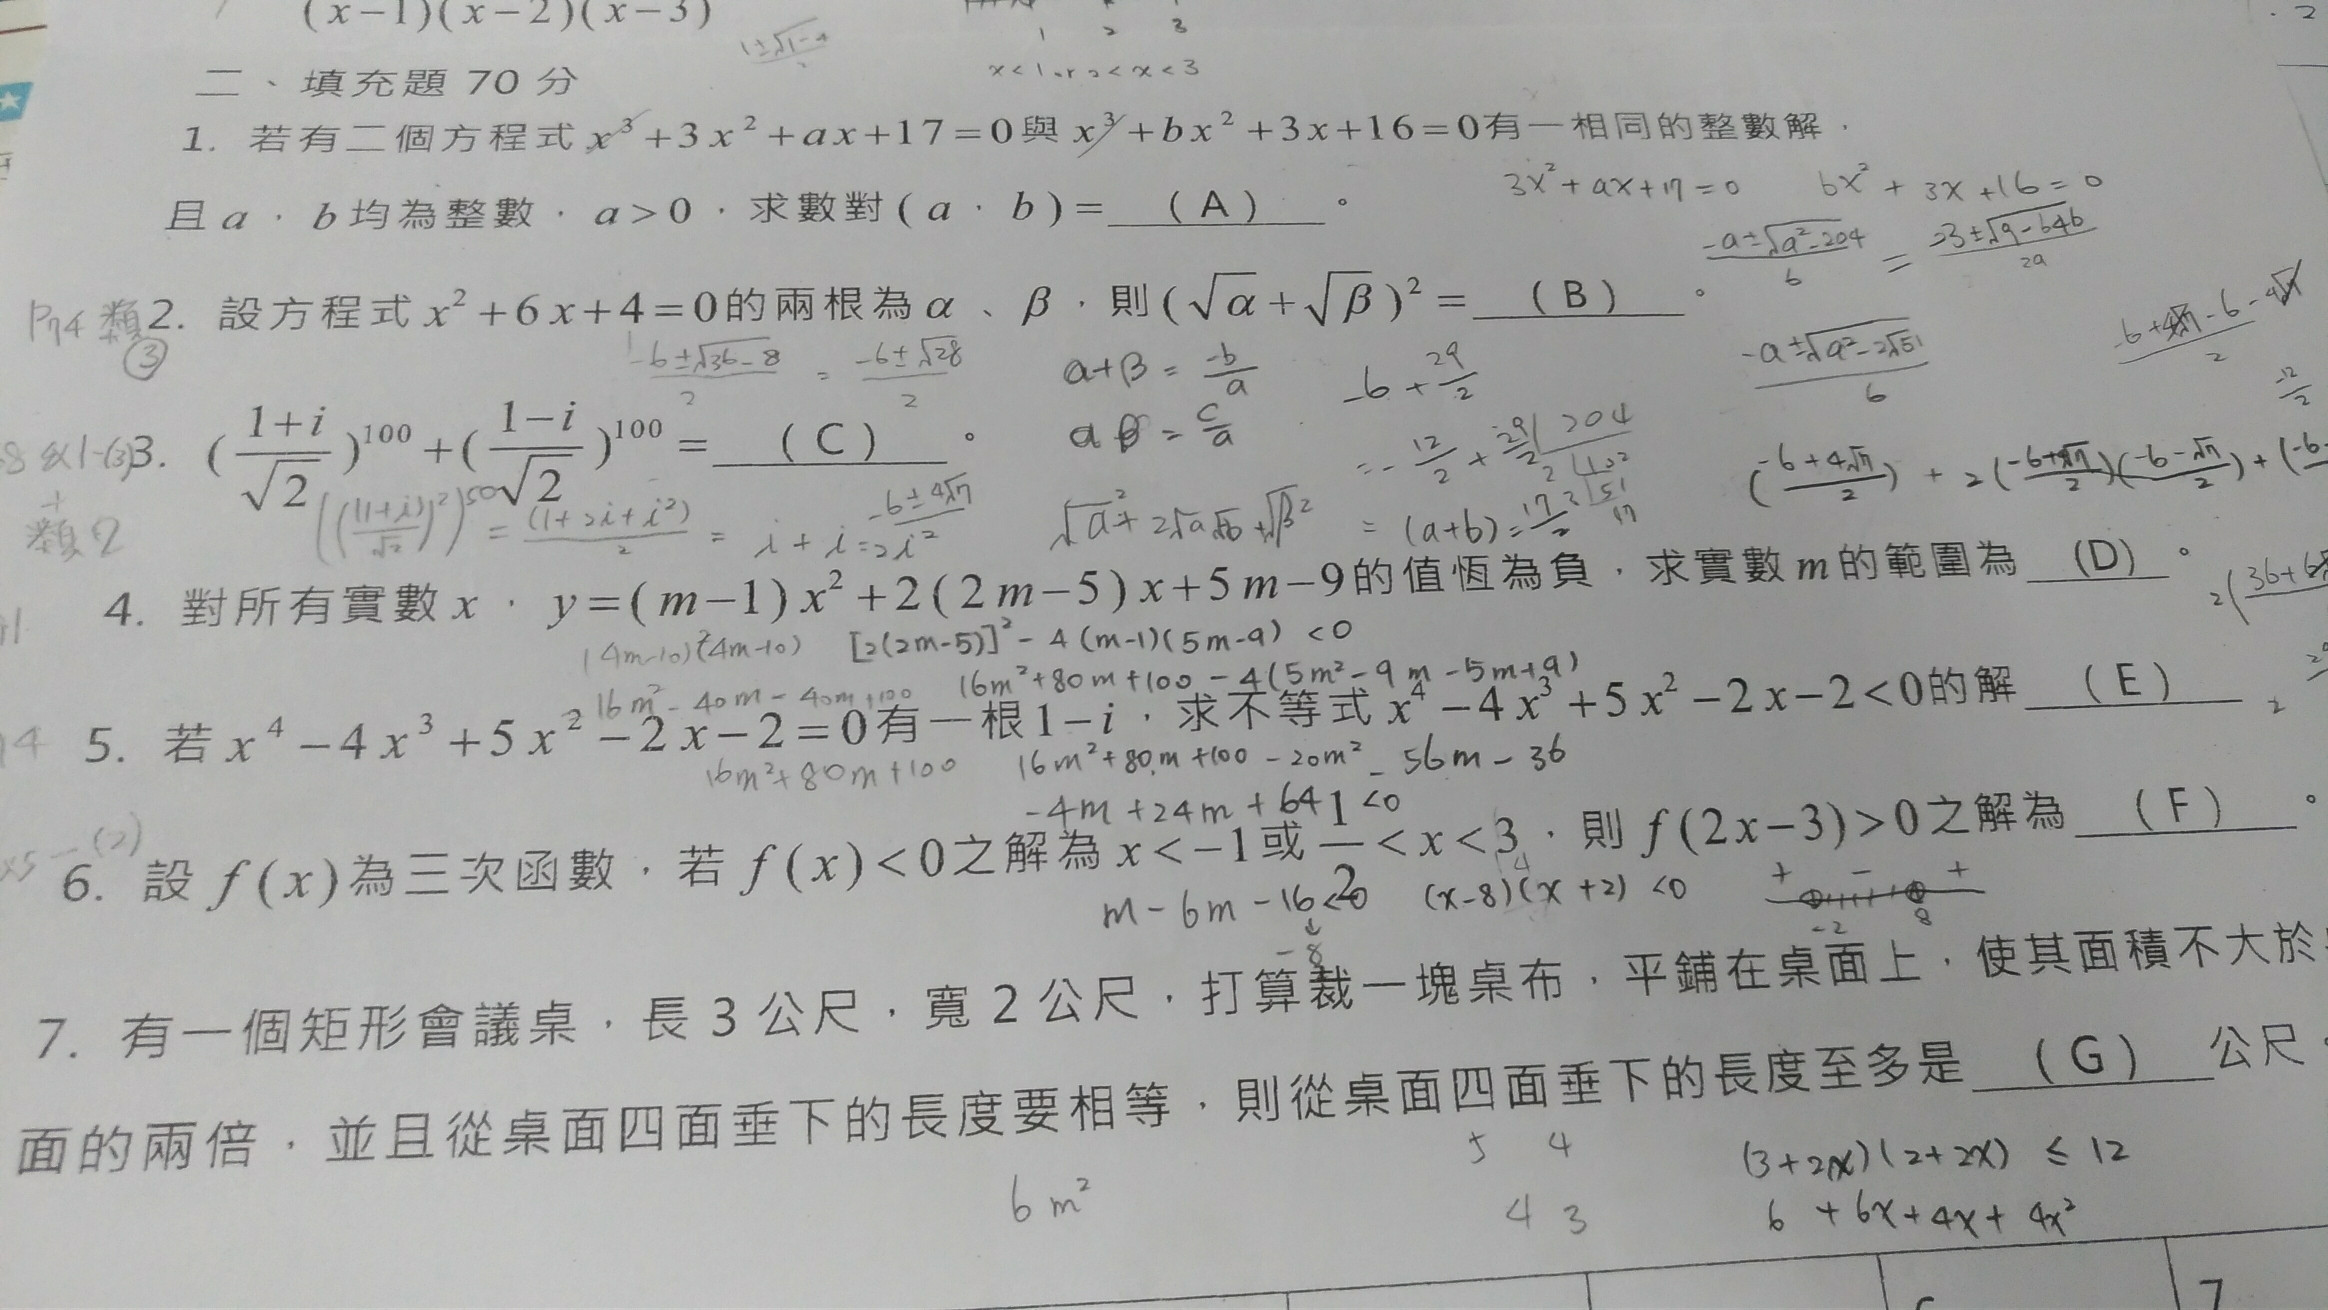 (x-1)(x-2)(x-3)
1 2 3
x<1 or 2<x<3
二、填充題 70 分
1. 若有二個方程式 x³+3x²+ax+17=0與 x³+bx²+3x+16=0有一相同的整數解，
3x²+ax+17=0 bx²+3x+16=0
且 a，b均為整數，a>0，求數對(a，b)= (A) 。
P74 類③
2. 設方程式 x²+6x+4=0的兩根為 α、β，則(√α+√β)²= (B) 。
-6±√36-8/2 = -6±√28/2
α+β = -b/a
αβ = c/a
-6+29/2
-a±√a²-204/6
3. (1+i/√2)¹⁰⁰+(1-i/√2)¹⁰⁰= (C) 。
類2
-6±4√7/2
= (a+b)=17/2
4. 對所有實數 x，y=(m-1)x²+2(2m-5)x+5m-9的值恆為負，求實數m的範圍為 (D) 。
(4m-10)(4m-10) [2(2m-5)]²-4(m-1)(5m-9)<0
16m²-40m-40m+100 16m²+80m+100-4(5m²-9m-5m+9)
5. 若 x⁴-4x³+5x²-2x-2=0有一根1-i，求不等式 x⁴-4x³+5x²-2x-2<0的解 (E)
16m²+80m+100 16m²+80m+100-20m²-56m-36
-4m+24m+64<0
6. 設 f(x)為三次函數，若 f(x)<0之解為 x<-1或 1/2<x<3，則 f(2x-3)>0之解為 (F) 。
m-6m-16<0 (x-8)(x+2)<0
+ - +
-2 8
-8
7. 有一個矩形會議桌，長 3 公尺，寬 2 公尺，打算裁一塊桌布，平鋪在桌面上，使其面積不大於
面的兩倍，並且從桌面四面垂下的長度要相等，則從桌面四面垂下的長度至多是 (G) 公尺。
5 4
(3+2x)(2+2x) ≤ 12
6 m²
4 3
6+6x+4x+4x²
7